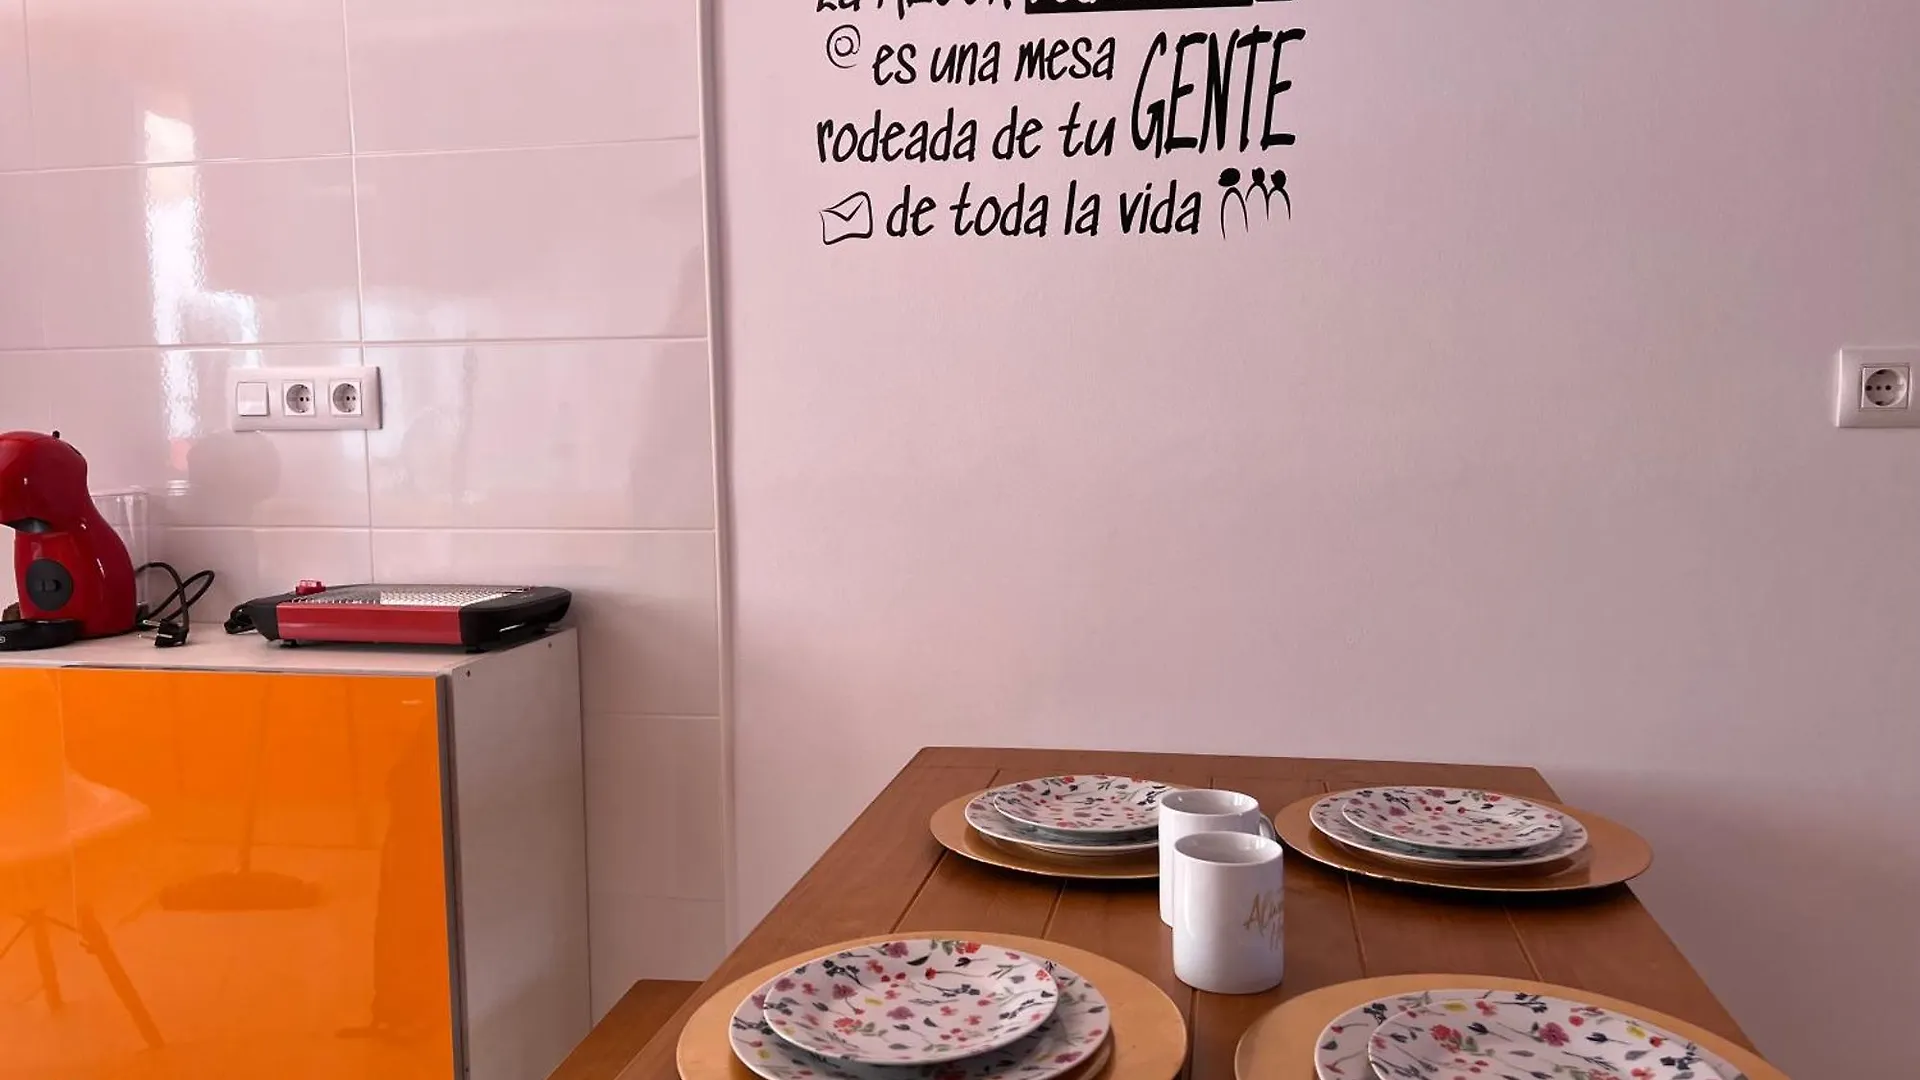 @ es una mesa
rodeada de tu GENTE
de toda la vida